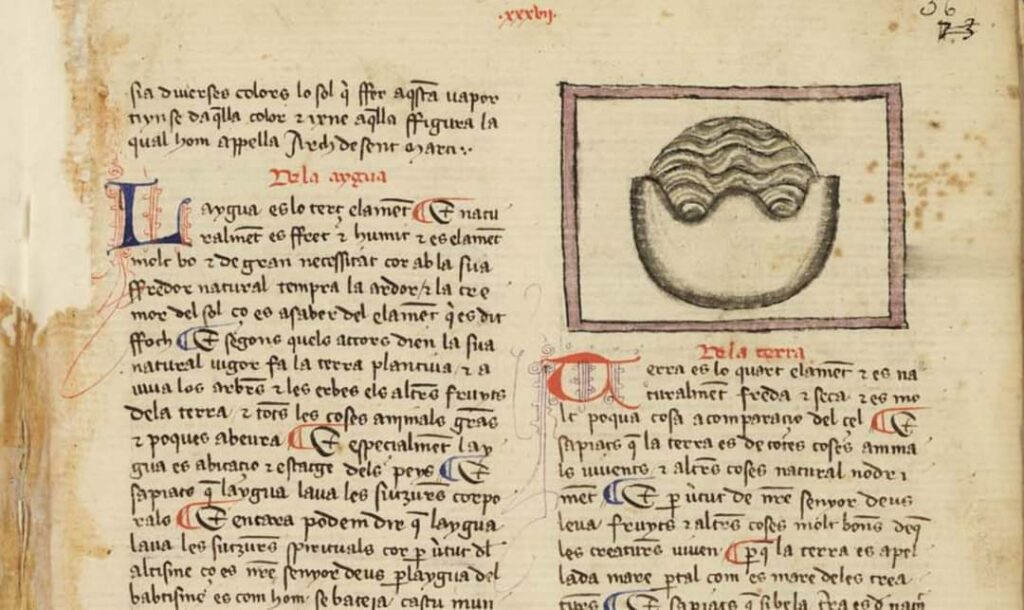 .xxxvij.
36
73
sia diuerses colors lo sol q̃ ffer aq̃sta uapor
tiynse daq̃lla color ⁊ ixne aq̃lla ffigura la
qual hom appella Arch de sent marti
Dela aygua
Laygua es lo terç elament E natu
ralment es ffret ⁊ humit ⁊ es elament
molt bo ⁊ de gran necessitat cor ab la sua
ffredor natural tempra la ardor ⁊ la cre
mor del sol ço es asaber del elament q̃ es dit
ffoch E segons quels actors dien la sua
natural uigor fa la terra plantiua ⁊ a
uiua los arbres ⁊ les erbes els altres fruyts
dela terra ⁊ totes les coses animals grãs
⁊ poques abeura E especialmet lay
gua es abitacio ⁊ estatge dels peys E
sapiats q̃ laygua laua les sutzures corpo
rals E encara podem dir q̃ laygua
laua les sutzures spirituals cor p uirtut dl
altisme ço es nr̃e senyor deus p laygua del
babtisme es com hom se bateja
Dela terra
Terra es lo quart elament ⁊ es na
turalment freda ⁊ seca ⁊ es mo
lt poqua cosa a comparacio del cel E
sapiats q̃ la terra es de totes coses anima
ls uiuents ⁊ altres coses natural nodri
ment E p uirtut de nr̃e senyor deus
leua fruyts ⁊ altres coses molt bons deq̃
les creatures uiuen Pq̃ la terra es apel
lada mare ptal com es mare deles crea
tures E sapiats q̃ sibela